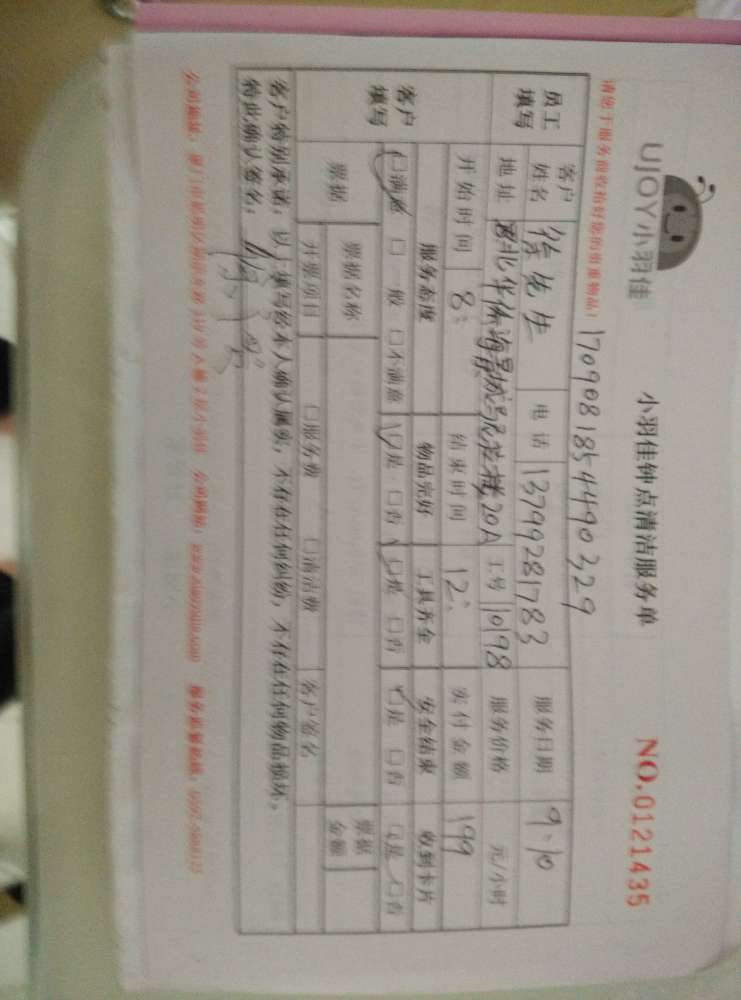 UJOY小羽佳
小羽佳钟点清洁服务单
NO.0121435
请您于服务前收拾好您的贵重物品!
17090818544490329
员工填写
客户姓名 徐先生 电话 13799281783 服务日期 9.10
地址 工号 10198 服务价格 元/小时
开始时间 8: 结束时间 12: 实付金额 199
客户填写
服务态度 物品完好 工具齐全 安全结束 收到卡片
□满意 □一般 □不满意 □是 □否 □是 □否 □是 □否 □是 □否
票据 票据名称 票据金额
开票项目 □服务费 □清洁费 客户签名
客户特别承诺:以上填写经本人确认属实,不存在任何纠纷,不存在任何物品损坏,
特此确认签名: